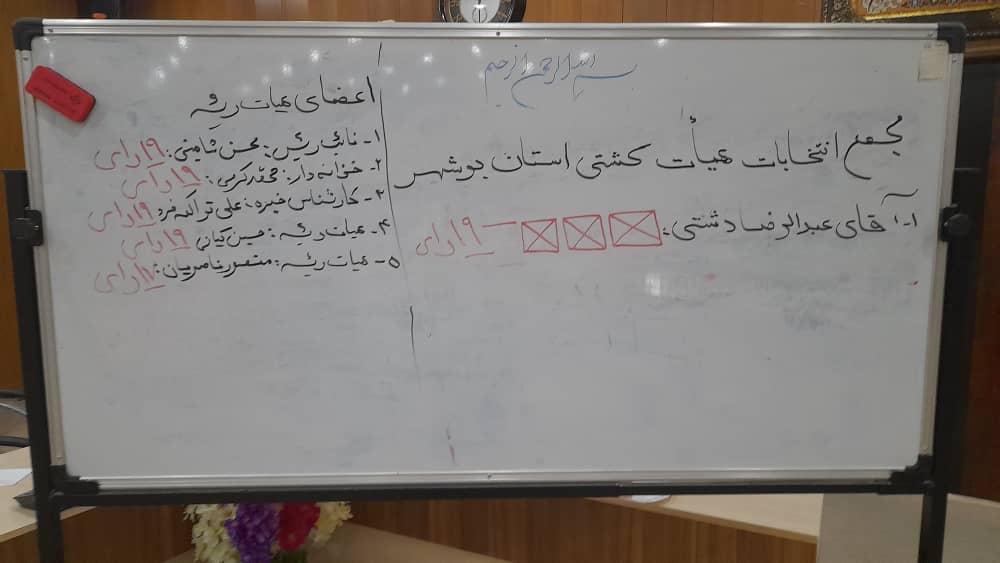 بسم الله الرحمن الرحیم
مجمع انتخابات هیأت کشتی استان بوشهر
۱- آقای عبدالرضا دشتی: ۱۹ رای
اعضای هیات رئیسه
۱- نائب رئیس: محسن ثامنی: ۱۹ رای
۲- خزانه دار: محمد کرمی: ۱۹ رای
۳- کارشناس خبره: علی تراکمه فرد ۱۹ رای
۴- هیات رئیسه: حسین کیانی ۱۹ رای
۵- هیات رئیسه: منصور ناصریان: رای